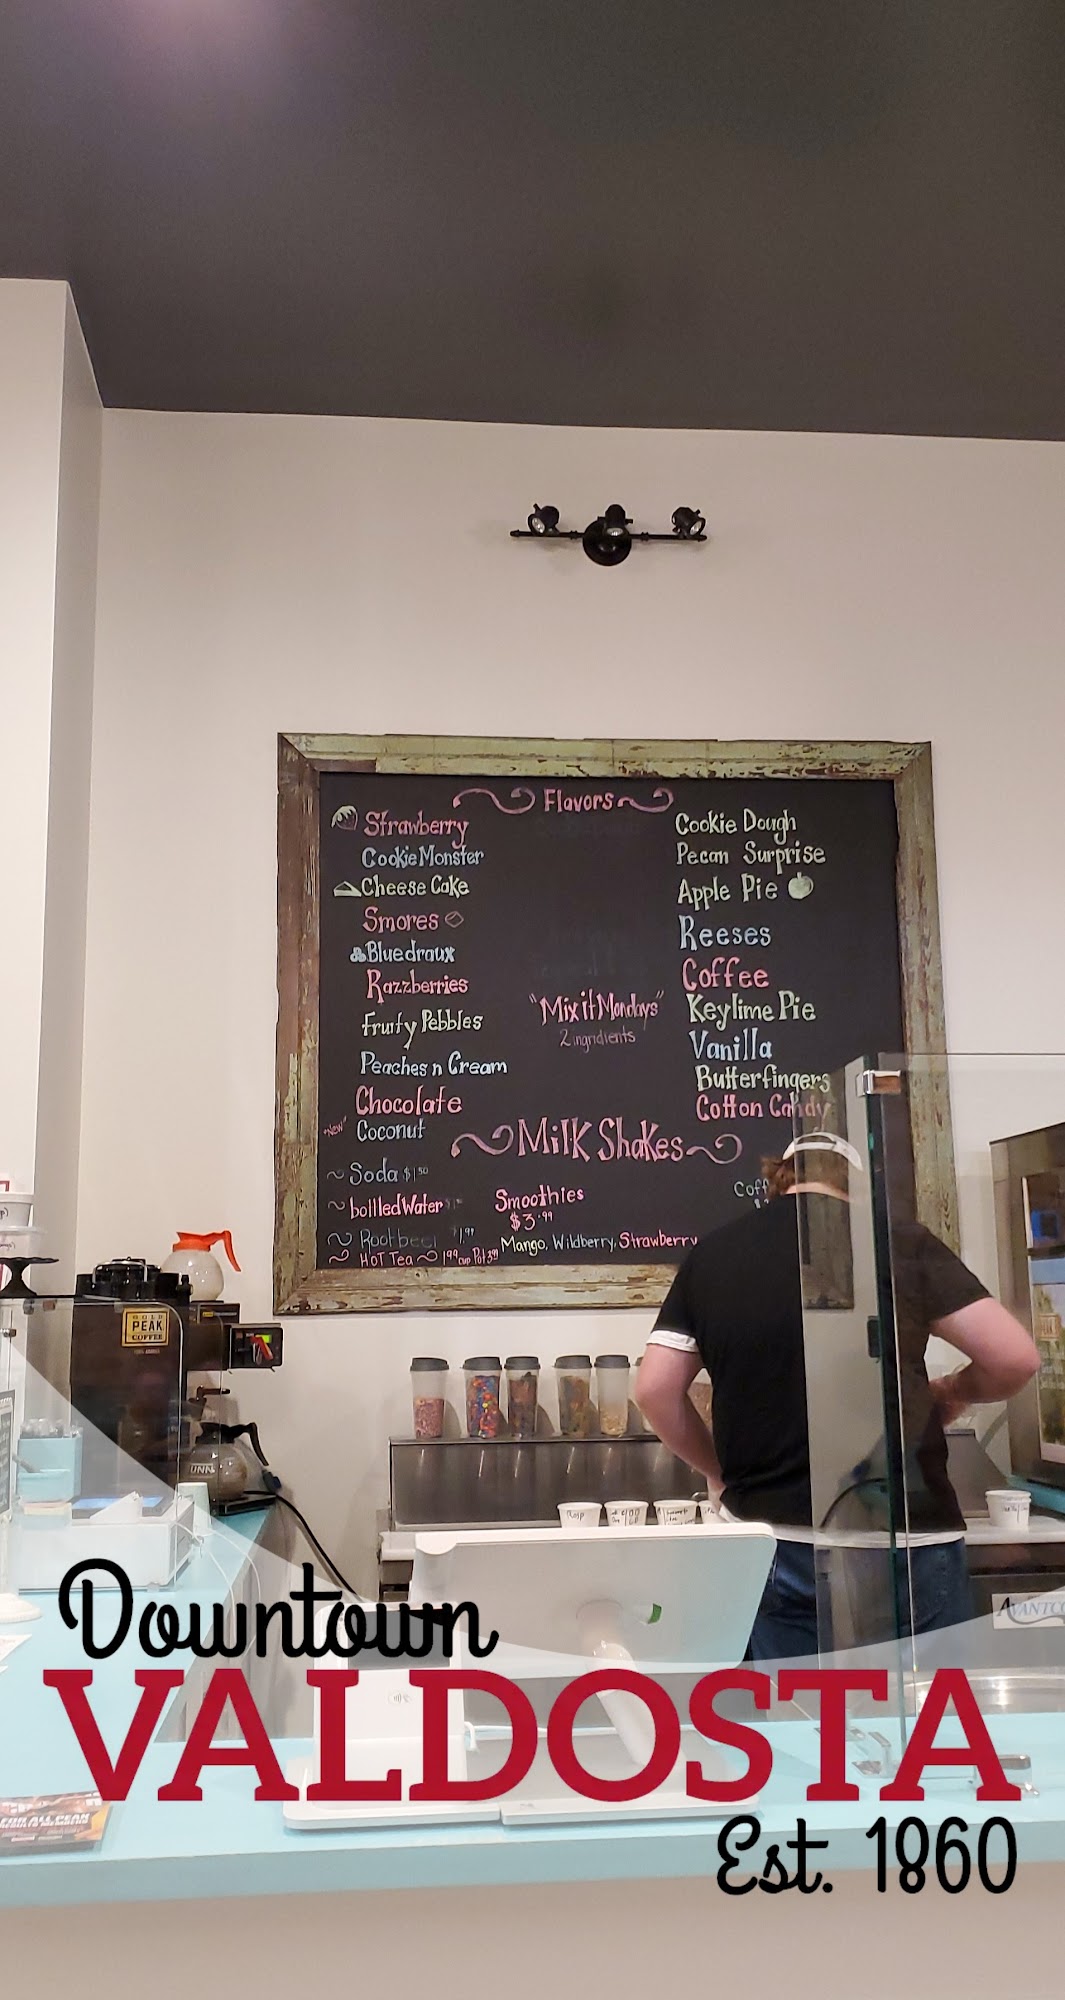 Flavors
Strawberry
Cookie Monster
Cheese Cake
Smores
Bluedraux
Razzberries
Fruity Pebbles
Peaches n Cream
Chocolate
"New" Coconut
Cookie Dough
Pecan Surprise
Apple Pie
Reeses
Coffee
Keylime Pie
Vanilla
Butterfingers
Cotton Candy
"Mix it Mondays"
2 ingridients
Milk Shakes
Soda $1.50
bottled Water
Rootbeer $1.99
HoT Tea 1.99 cup Pot 3.99
Smoothies
$3.99
Mango, Wildberry, Strawberry
Coff
GOLD
PEAK
COFFEE
BUNN
AVANTCO
Downtown
VALDOSTA
Est. 1860